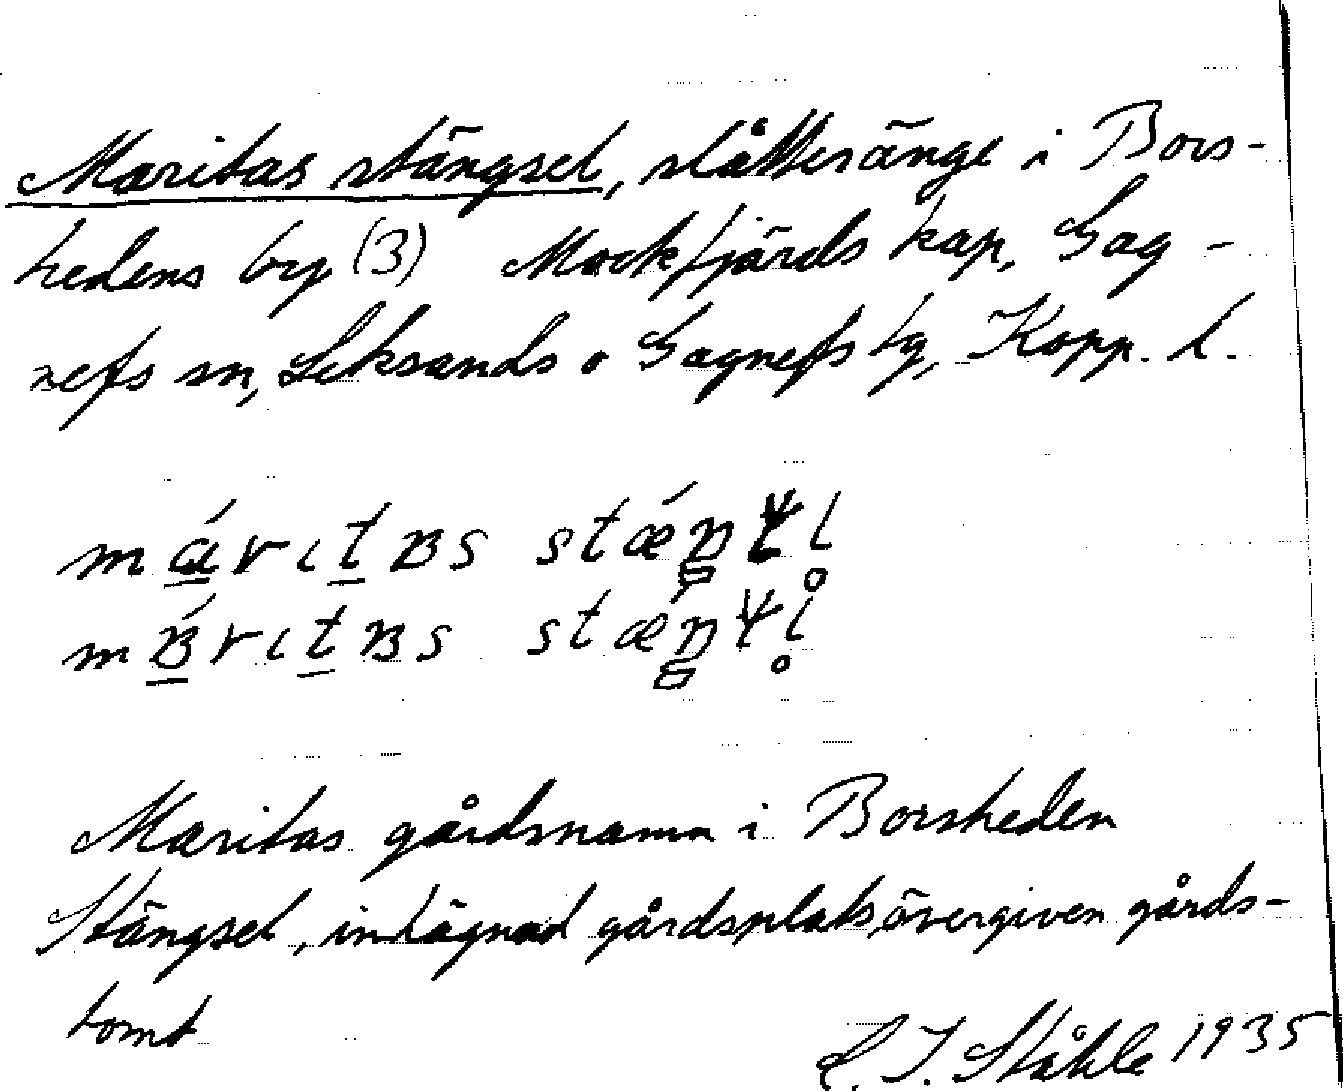 Maritas stängsel, slåttesänge i Bors-
hedens by (3) Mockfjärds kap. Gag-
nefs sn, Leksands o Gagnefs tg, Kopp. l.
Maritas gårdsnamn i Borsheden
Stängsel, inhägnad gårdsplats, övergiven gårds-
tomt
C. I. Ståhle 1935